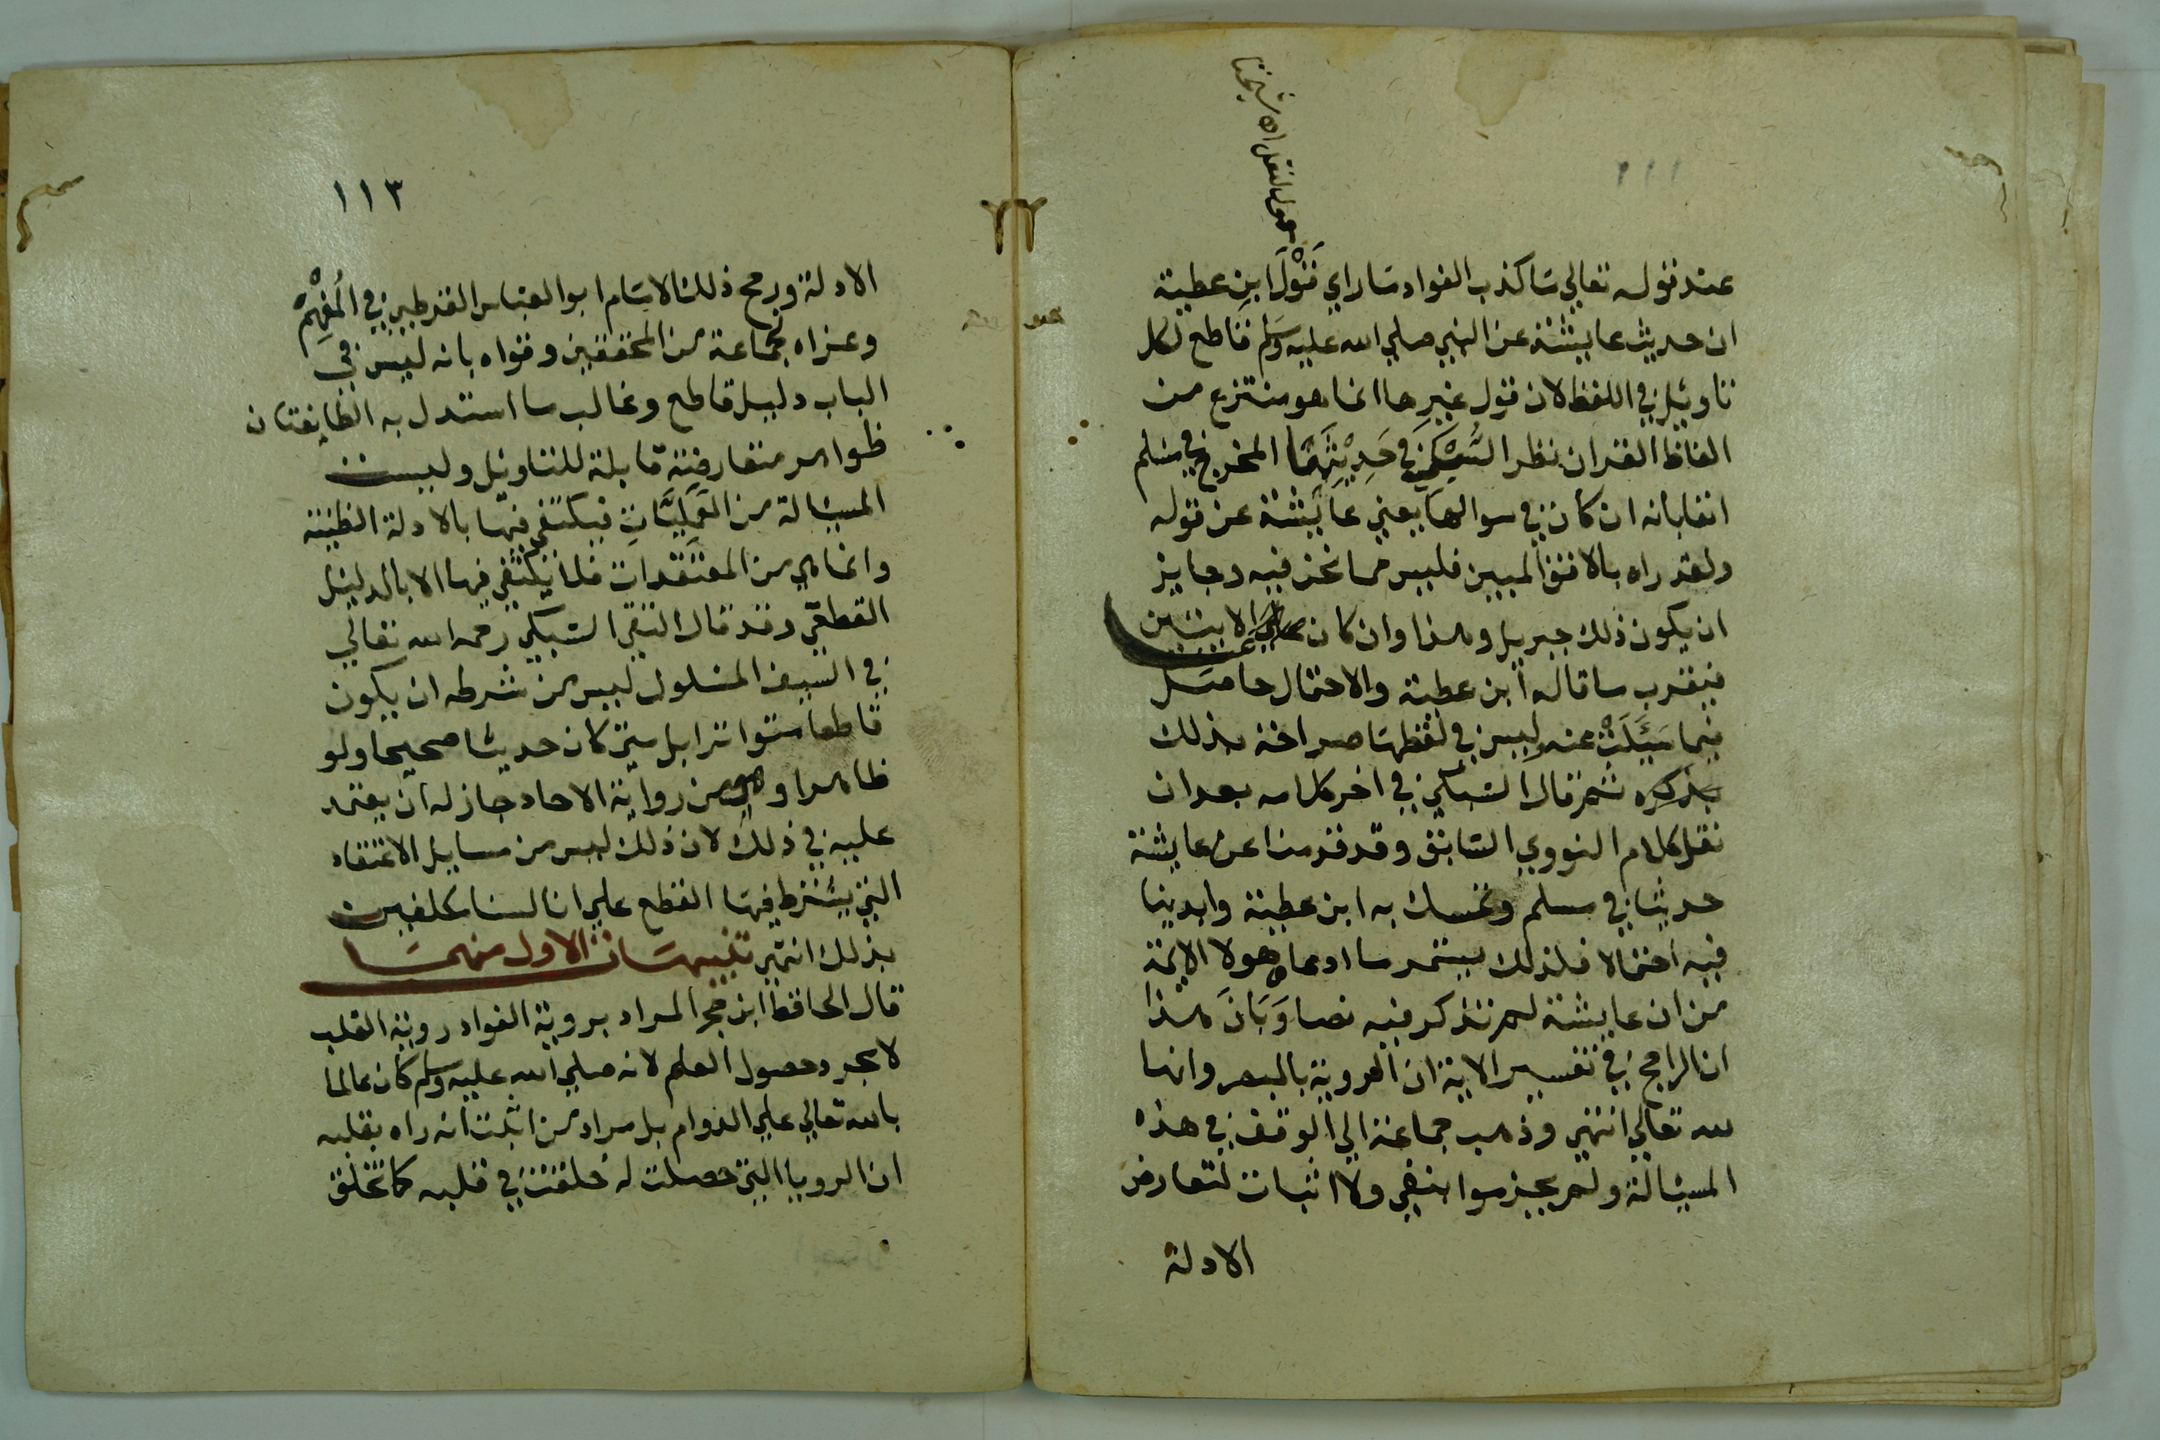 عند قوله تعالي ما كذب الفواد ما راي قَوْلَ ابنِ عطية
ان حديث عايشة عن النبي صلي الله عليه وسلم قاطع لكل
تاويل في اللفظ لان قول غيرها انما هو منتزع من
الفاظ القران نظر السُّبْكي في حَدِيْثِهَا المخرج في مسلم
انفا بانه ان كان في سوالها يعني عايشة عن قوله
ولقد راه بالافق المبين فليس مما نحن فيه وجايز
ان يكون ذلك جبريل وهذا وان كان عن الايتين
فيقرب ما قاله ابن عطية والاحتمال حاصل
فيما سَئَلَتْ عنه وليس في لفظها صراحة بذلك
بذكره ثم قال السبكي في اخر كلامه بعد ان
نقل كلام النووي السابق وقد قدمنا عن عايشة
حديثا في مسلم وتمسك به ابن عطية وابدينا
فيه احتمالا فلذلك يستمر ما ادعاه هولا الايمة
من ان عايشة لم تذكر فيه نصا وَبَانَ هذا
ان الراجح في تفسير الاية ان الروية بالبصر وانها
لله تعالي انتهي وذهب جماعة الي الوقف في هذه
المسئالة ولم يجزموا بنفي ولا اثبات لتعارض
الادلة
١١٣
الادلة ورجح ذلك الامام ابو العباس القرطبي في المُفْهِمْ
وعزاه لجماعة من المحققين وقواه بانه ليس في
الباب دليل قاطع وغالب ما استدل به الطايفتان
ظواهر متعارضة قابلة للتاويل وليست
المسئالة من العَمَلِيَّاتِ فيكتفي فيها بالادلة الظنية
وانما هي من المعتقدات فلا يكتفي فيها الا بالدليل
القطعي وقد قال التقي السبكي رحمه الله تعالي
في السيف المسلول ليس من شرطه ان يكون
قاطعا متواترا بل متي كان حديثا صحيحا ولو
ظاهرا وهو من رواية الاحاد جاز له ان يعتمد
عليه في ذلك لان ذلك ليس من مسايل الاعتقاد
التي يشترط فيها القطع علي انا لسنا مكلفين
بذلك انتهي تنبيهان الاول منهما
قال الحافظ ابن حجر المراد بروية الفواد روية القلب
لا مجرد حصول العلم لانه صلي الله عليه وسلم كان عالما
بالله تعالي علي الدوام بل مراد من اثبت انه راه بقلبه
ان الرويا التي حصلت له خلقت في قلبه كما تخلق